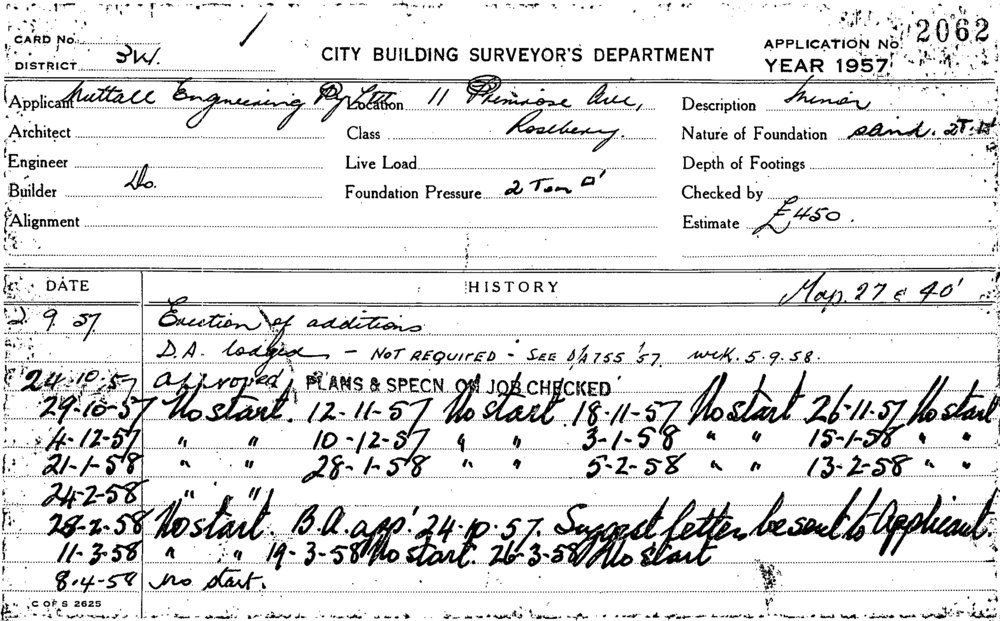 CARD No.
DISTRICT 3W.
CITY BUILDING SURVEYOR'S DEPARTMENT
APPLICATION No. 2062
YEAR 1957
Applicant Nuttall Engineering Pty Ltd Location 11 Primrose Ave, Description Minor
Architect Class Rosebery. Nature of Foundation sand. 2T.
Engineer Live Load Depth of Footings
Builder Do. Foundation Pressure 2 Ton □' Checked by
Alignment Estimate £450.
DATE HISTORY Map. 27 40'
2 9 57 Erection of additions
D.A. lodged - NOT REQUIRED - SEE D/A 755 '57 wck. 5.9.58.
24-10-57 approved PLANS & SPECN. ON JOB CHECKED
29-10-57 No start. 12-11-57 No start 18-11-57 No start 26-11-57 No start
4-12-57 " " 10-12-57 " " 3-1-58 " " 15-1-58 " "
21-1-58 " " 28-1-58 " " 5-2-58 " " 13-2-58 " "
24-2-58 " "
28-2-58 No start. B.A. app'. 24.10.57. Suggest letter be sent to Applicant.
11-3-58 " " 19-3-58 No start. 26-3-58 No start
8.4-58 no start.
C OF S 2625